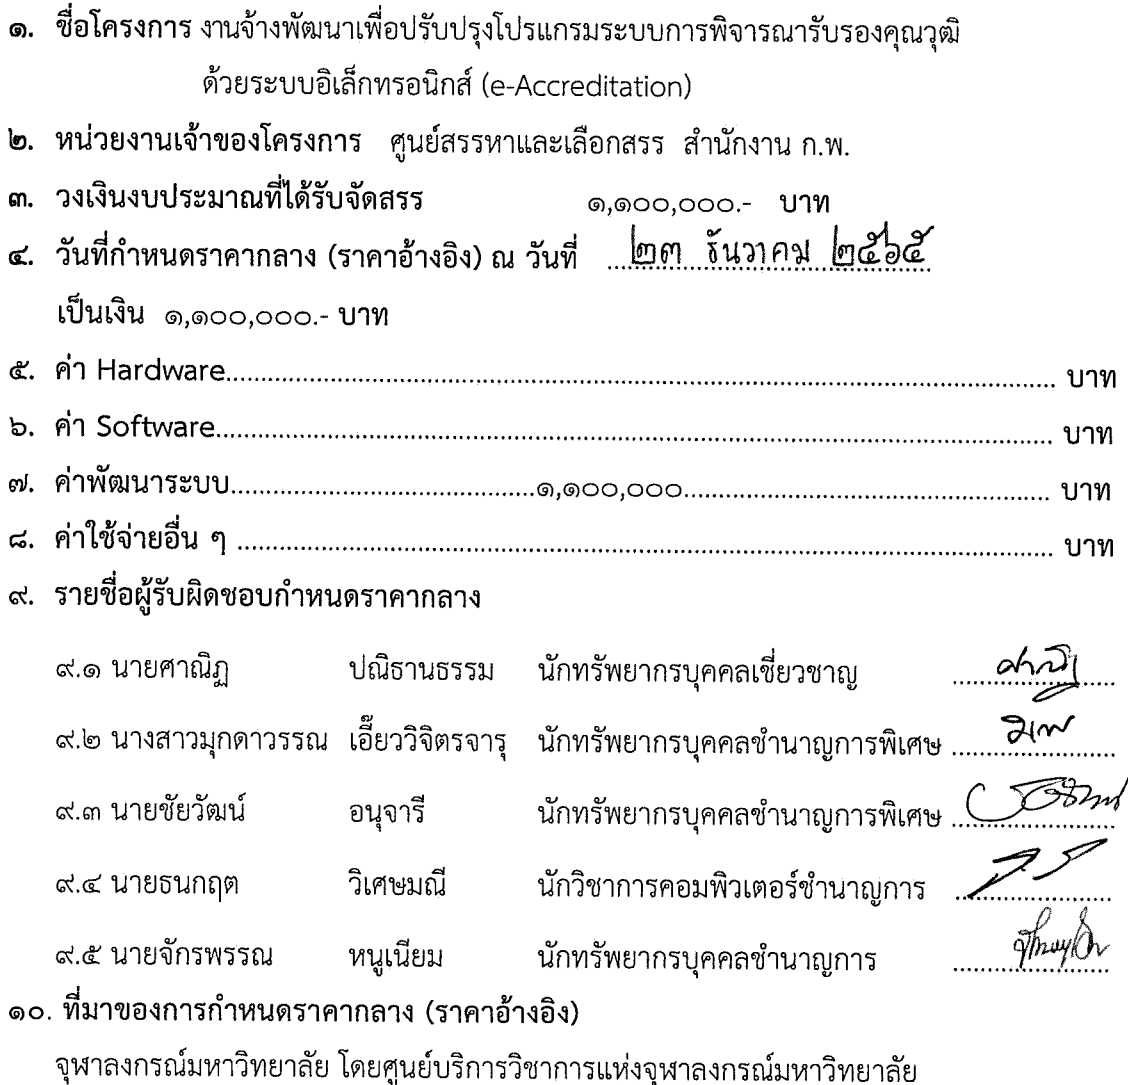 ๑. ชื่อโครงการ งานจ้างพัฒนาเพื่อปรับปรุงโปรแกรมระบบการพิจารณารับรองคุณวุฒิ
ด้วยระบบอิเล็กทรอนิกส์ (e-Accreditation)
๒. หน่วยงานเจ้าของโครงการ ศูนย์สรรหาและเลือกสรร สำนักงาน ก.พ.
๓. วงเงินงบประมาณที่ได้รับจัดสรร ๑,๑๐๐,๐๐๐.- บาท
๔. วันที่กำหนดราคากลาง (ราคาอ้างอิง) ณ วันที่ ๒๓ ธันวาคม ๒๕๖๕
เป็นเงิน ๑,๑๐๐,๐๐๐.- บาท
๕. ค่า Hardware.......... บาท
๖. ค่า Software.......... บาท
๗. ค่าพัฒนาระบบ..........๑,๑๐๐,๐๐๐.......... บาท
๘. ค่าใช้จ่ายอื่น ๆ .......... บาท
๙. รายชื่อผู้รับผิดชอบกำหนดราคากลาง
๙.๑ นายศาณิฏ ปณิธานธรรม นักทรัพยากรบุคคลเชี่ยวชาญ
๙.๒ นางสาวมุกดาวรรณ เอี๊ยววิจิตรจารุ นักทรัพยากรบุคคลชำนาญการพิเศษ
๙.๓ นายชัยวัฒน์ อนุจารี นักทรัพยากรบุคคลชำนาญการพิเศษ
๙.๔ นายธนกฤต วิเศษมณี นักวิชาการคอมพิวเตอร์ชำนาญการ
๙.๕ นายจักรพรรณ หนูเนียม นักทรัพยากรบุคคลชำนาญการ
๑๐. ที่มาของการกำหนดราคากลาง (ราคาอ้างอิง)
จุฬาลงกรณ์มหาวิทยาลัย โดยศูนย์บริการวิชาการแห่งจุฬาลงกรณ์มหาวิทยาลัย